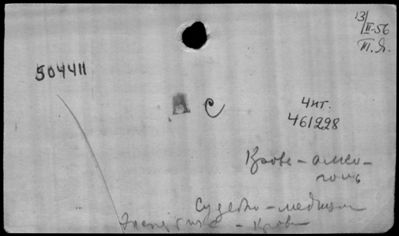 13/II-56
П.Я.
504411
А с
Чит.
461228
Кровь -
Судебно - медицин
Экспертиза - Кровь